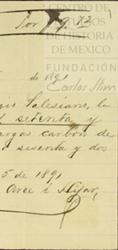 Por $ 9.72
CENTRO
DE ESTUDIOS
DE HISTORIA
DE MEXICO
FUNDACIÓN
Carlos Slim
de 1891
Salesiana, la
setenta y
cargas carbón de
sesenta y dos
5 de 1891
Arce é Hijar,